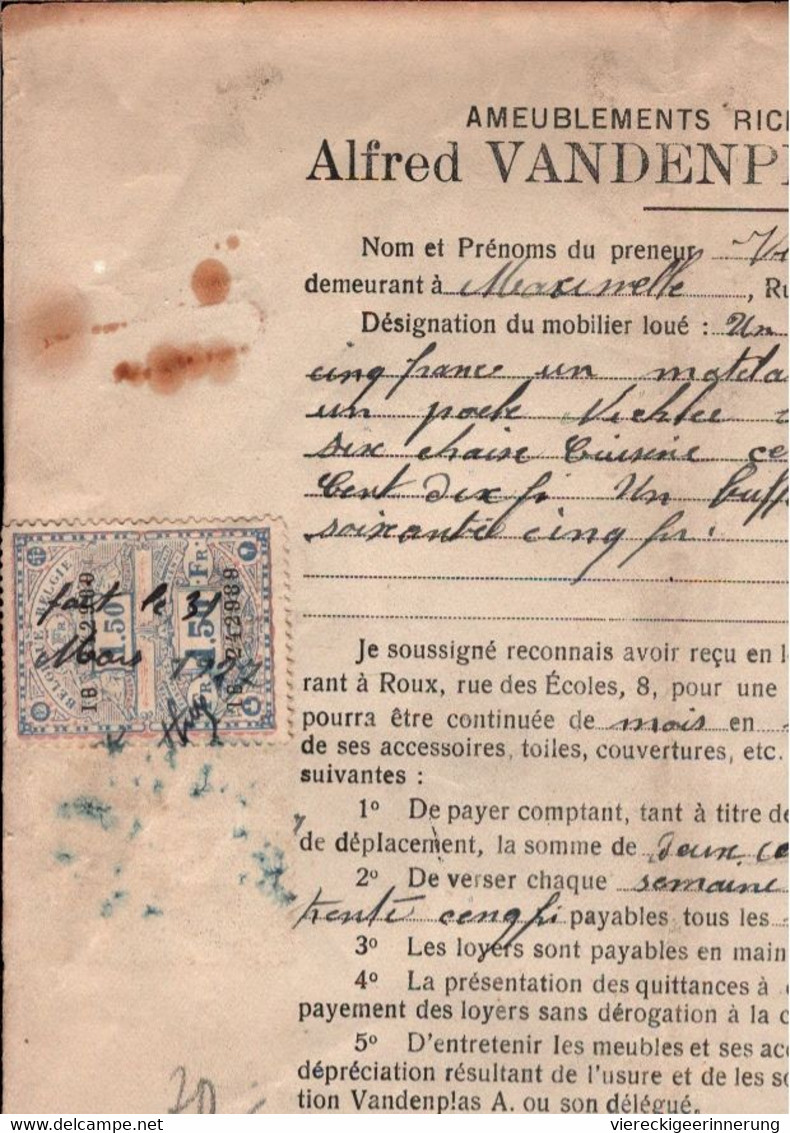 AMEUBLEMENTS RICH
Alfred VANDENPL
Nom et Prénoms du preneur
demeurant à Marcinelle, Ru
Désignation du mobilier loué : Un
cinq francs un matela
un poele
six chaise Cuisine ce
Cent dix fr Un buff
soixante cinq fr.
BELGIQUE-BELGIE
Fr 1.50
1.50 Fr
18 242989
fait le 31
Mars 1927
Je soussigné reconnais avoir reçu en l
rant à Roux, rue des Écoles, 8, pour une
pourra être continuée de mois en
de ses accessoires, toiles, couvertures, etc.
suivantes :
1º De payer comptant, tant à titre de
de déplacement, la somme de deux ce
2º De verser chaque semaine
trente cinq fr payables tous les
3º Les loyers sont payables en main
4º La présentation des quittances à
payement des loyers sans dérogation à la c
5º D'entretenir les meubles et ses acc
dépréciation résultant de l'usure et de les so
tion Vandenplas A. ou son délégué.
70
viereckigeerinnerung